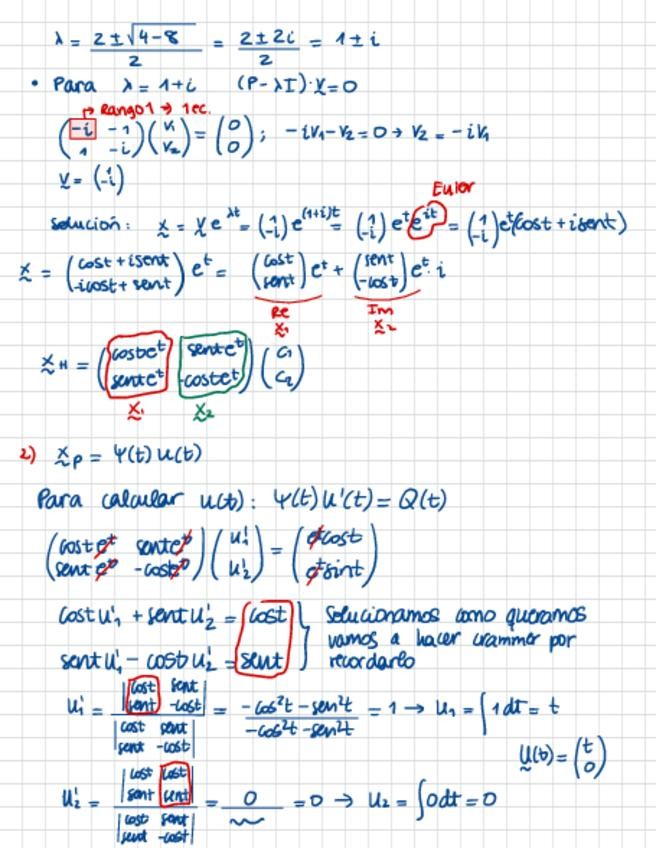 λ = (2 ± √(4-8))/2 = (2 ± 2i)/2 = 1 ± i
• Para λ = 1+i (P-λI)·v = 0
↱ Rango 1 → 1 ec.
(-i -1; 1 -i)(v₁; v₂) = (0; 0) ; -iv₁-v₂=0 → v₂ = -iv₁
v = (1; -i)
Euler
solución: x = v e^λt = (1; -i) e^(1+i)t = (1; -i) e^t e^it = (1; -i) e^t(cost + isent)
x = (cost + isent; -icost + sent) e^t = (cost; sent) e^t + (sent; -cost) e^t · i
Re Im
x₁ x₂
x_H = (cost e^t sent e^t; sent e^t -cost e^t)(c₁; c₂)
x₁ x₂
2) x_p = Ψ(t) u(t)
Para calcular u(t): Ψ(t) u'(t) = Q(t)
(cost e^t sent e^t; sent e^t -cost e^t)(u₁'; u₂') = (e^t cost; e^t sint)
cost u₁' + sent u₂' = cost } Solucionamos como queramos
sent u₁' - cost u₂' = sent } vamos a hacer crammer por
recordarlo
u₁' = |cost sent; sent -cost| / |cost sent; sent -cost| = (-cos²t - sen²t)/(-cos²t - sen²t) = 1 → u₁ = ∫1dt = t
u(t) = (t; 0)
u₂' = |cost cost; sent sent| / |cost sent; sent -cost| = 0/~ = 0 → u₂ = ∫0dt = 0